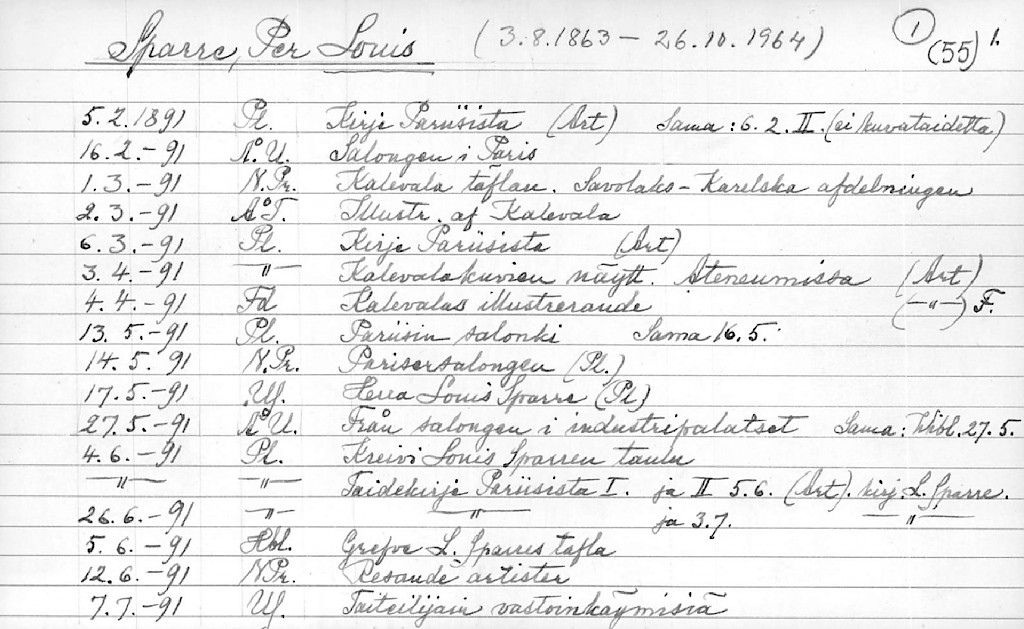 Sparre, Per Louis (3.8.1863 – 26.10.1964) 1 (55) 1.
5.2.1891 Pl. Kirje Pariisista (Art) Sama: 6.2. II. (ei kuvataidetta)
16.2.-91 Å.U. Salongen i Paris
1.3.-91 N.Pr. Kalevala taflan. Savolaks-Karelska afdelningen
2.3.-91 Å.T. Illustr. af Kalevala
6.3.-91 Pl. Kirje Pariisista (Art)
3.4.-91 —"— Kalevalakuvien näytt. Ateneumissa (Art)
4.4.-91 Fd Kalevalas illustrerande (—"—) F.
13.5.-91 Pl. Pariisin salonki Sama 16.5.
14.5.91 N.Pr. Parisersalongen (Pl.)
17.5.-91 U.S. Herra Louis Sparre (Pl)
27.5.-91 Å.U. Från salongen i industripalatset Sama: Wibl. 27.5.
4.6.-91 Pl. Kreivi Louis Sparren taulu
—"— —"— Taidekirje Pariisista I. ja II 5.6. (Art). kirj. L. Sparre.
26.6.-91 —"— —"— ja 3.7. —"—
5.6.-91 Hbl. Grefve L. Sparres tafla
12.6.-91 N.Pr. Resande artister
7.7.-91 U.S. Taiteilijain vastoinkäymisiä